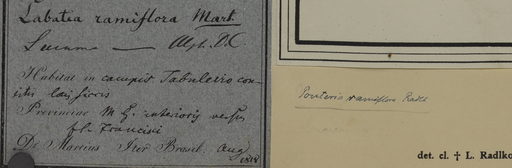 Labatea ramiflora Mart.
Alph. DC.
Habitat in campis Tabulerro con-
Provinciae M. G. interioris versus
fl. Francisci
De Martius Iter Brasil. Aug
1818
Pouteria ramiflora Radlk
det. cl. † L. Radlko